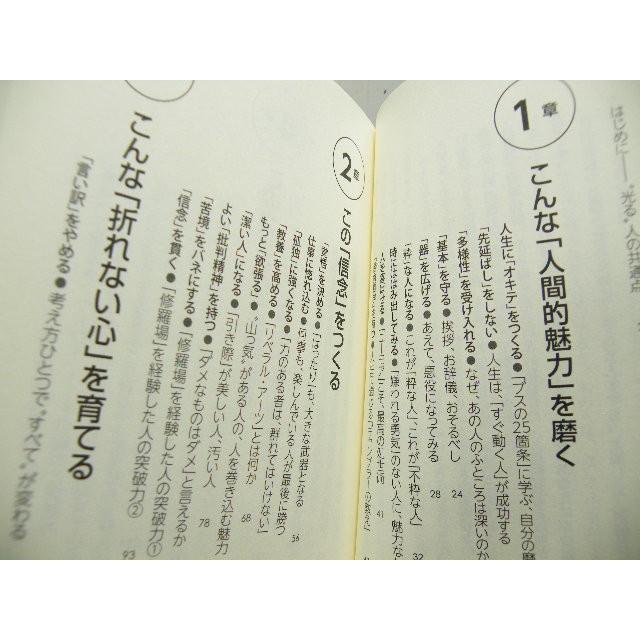 はじめに――“光る”人の共通点
1章
こんな「人間的魅力」を磨く
人生に「オキテ」をつくる ● 「ブスの25箇条」に学ぶ、自分の磨
「先延ばし」をしない ● 人生は、「すぐ動く人」が成功する
「多様性」を受け入れる ● なぜ、あの人のふところは深いのか
「基本」を守る ● 挨拶、お辞儀、おそるべし 24
「器」を広げる ● あえて、悪役になってみる 28
「粋」な人になる ● これが「粋な人」、これが「不粋な人」 32
時にははみ出してみる ● 「嫌われる勇気」のない人に、魅力な
41
2章
この「信念」をつくる
「覚悟」を決める ● 「はったり」も、大きな武器となる
仕事に惚れ込む ● 何事も、楽しんでいる人が最後に勝つ 56
「孤独」に強くなる ● 「力のある者は、群れてはいけない」
「教養」を高める ● 「リベラル・アーツ」とは何か 68
もっと“欲張る” ● “山っ気”がある人の、人を巻き込む魅力
「潔い人」になる ● 「引き際」が美しい人、汚い人 78
よい「批判精神」を持つ ● 「ダメなものはダメ」と言えるか
「苦境」をバネにする ● 「修羅場」を経験した人の突破力①
「信念」を貫く ● 「修羅場」を経験した人の突破力② 93
こんな「折れない心」を育てる
「言い訳」をやめる ● 考え方ひとつで“すべて”が変わる